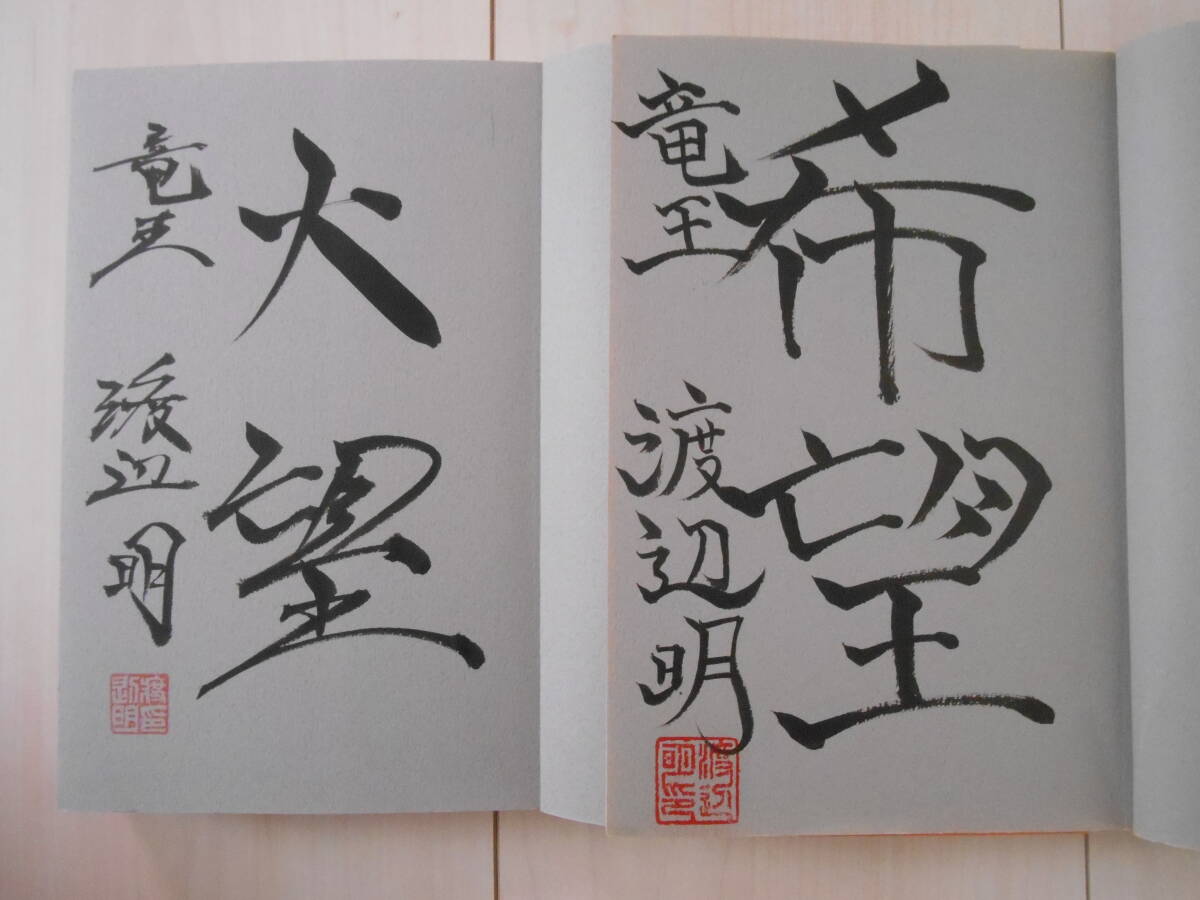 希望
竜王 渡辺明
渡辺
明印
大望
竜王 渡辺明